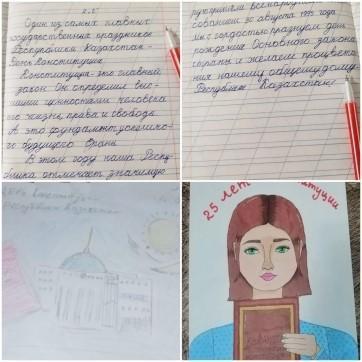 Один из самых главных
государственных праздников
Республики Казахстан -
День Конституции.
Конституция - это главный
закон. Он определил выс-
шими ценностями человека
его жизнь, права и свобода.
А это фундамент успешно-
го будущего страны.
В этом году наша Респу-
блика отмечает значимую
сованием 30 августа 1995 года.
Мы с гордостью празднуем день
рождения Основного закона
страны и желаем процвета-
ния нашему общему дому -
Республике Казахстан!
День Конституции
Республики Казахстан
25 лет Конституции